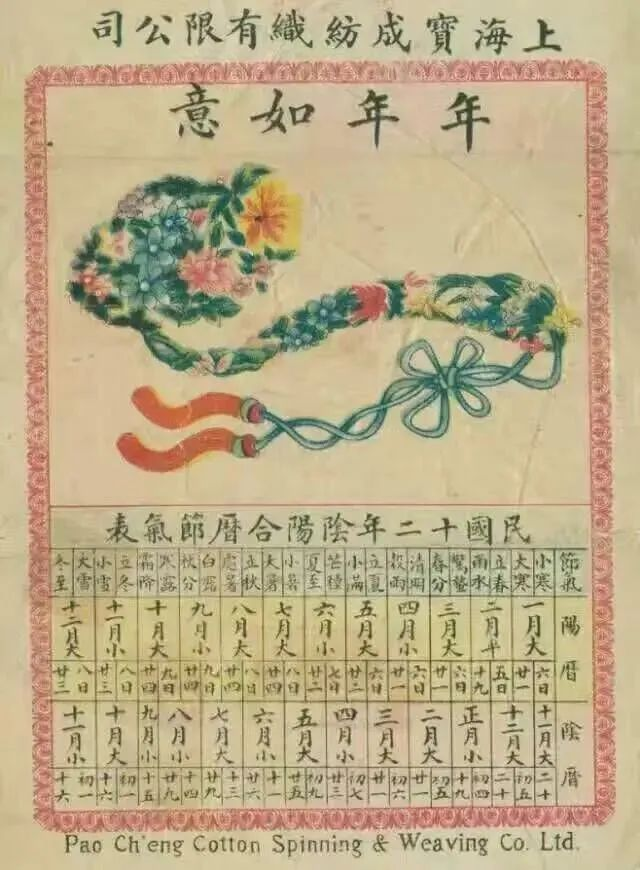 上海寶成紡織有限公司
年年如意
民國十二年陰陽合曆節氣表
節氣 小寒 大寒 立春 雨水 驚蟄 春分 清明 穀雨 立夏 小滿 芒種 夏至 小暑 大暑 立秋 處暑 白露 秋分 寒露 霜降 立冬 小雪 大雪 冬至
陽曆 一月大 二月平 三月大 四月小 五月大 六月小 七月大 八月大 九月小 十月大 十一月小 十二月大
六日 廿一 五日 十九 六日 廿一 六日 廿一 六日 廿二 七日 廿二 八日 廿四 八日 廿四 九日 廿四 九日 廿四 八日 廿三 八日 廿三
陰曆 十一月大 十二月大 正月小 二月大 三月大 四月小 五月大 六月小 七月大 八月小 九月小 十月大 十一月小
二十 初五 二十 初四 十九 廿一 初六 廿一 初七 廿三 初九 廿五 十一 廿六 十三 廿九 十四 廿九 十五 初一 十六 初一 十六
Pao Ch'eng Cotton Spinning & Weaving Co. Ltd.